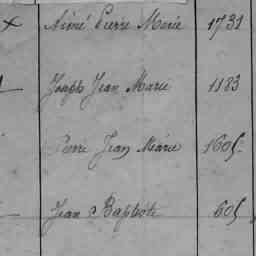 Aimé Pierre Marie 1731
Joseph Jean Marie 1183
Pierre Jean Marie 1605
Jean Baptiste 605